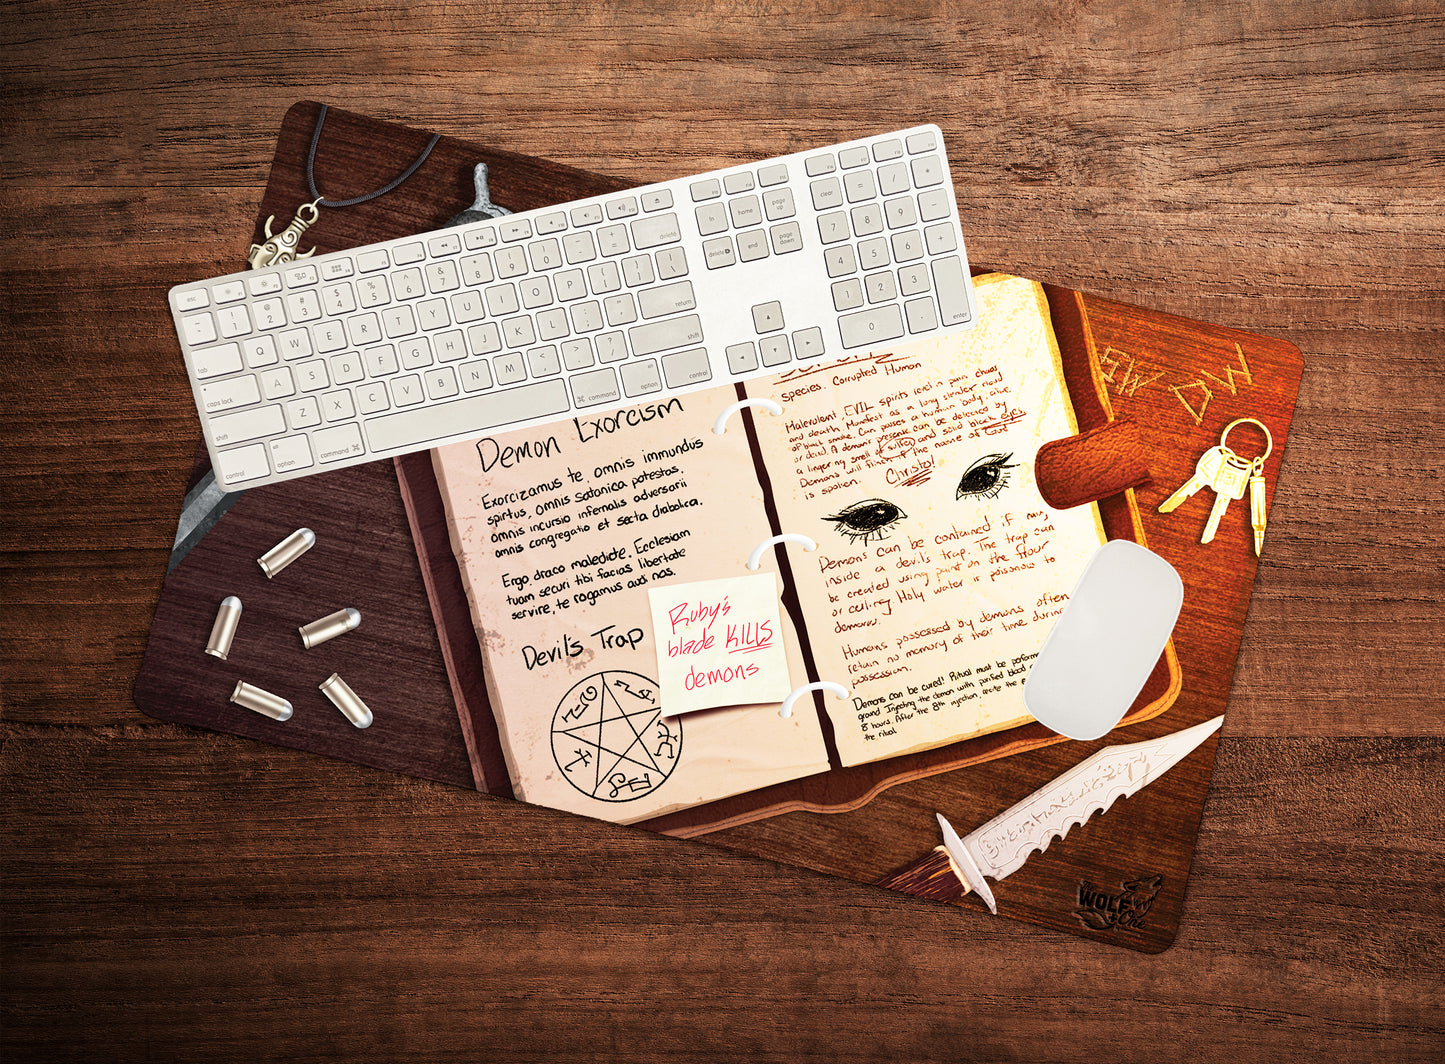 Demon Exorcism
Exorcizamus te, omnis immundus
spirtus, omnis satanica potestas,
omnis incursio infernalis adversarii
omnis congregatio et secta diabolica.
Ergo, draco maledicte. Ecclesiam
tuam securi tibi facias libertate
servire, te rogamus audi nos.
Devil's Trap
Ruby's
blade KILLS
demons
species. Corrupted Human
Malevolent, EVIL spirits reveling in pain, chaos
and death. Manifest as a long slender cloud
of black smoke. Can posses a human body, alive
or dead. A demons presense can be detected by
a lingering smell of sulfer and solid black eyes.
Demons will flinch if the name of God
is spoken. Christo!
Demons can be contained if
inside a devil's trap. The trap can
be created using paint on the floor
or ceiling. Holy water is poisonow to
demons.
Humans possessed by demons often
retain no memory of their time during
possession.
Demons can be cured! Ritual must be performed
ground. Injecting the demon with purified blood
8 hours. After the 8th injection, recite the
the ritual.
SW DW
WOLF
esc
F1
F2
F3
F4
1
2
3
4
5
6
7
8
9
0
delete
tab
Q W E R T Y U I O P
caps lock
A S D F G H J K L
return
shift
Z X C V B N M
shift
control
option
command
command
option
control
fn
home
page
up
delete
end
page
down
clear
7 8 9
4 5 6
1 2 3
0
enter